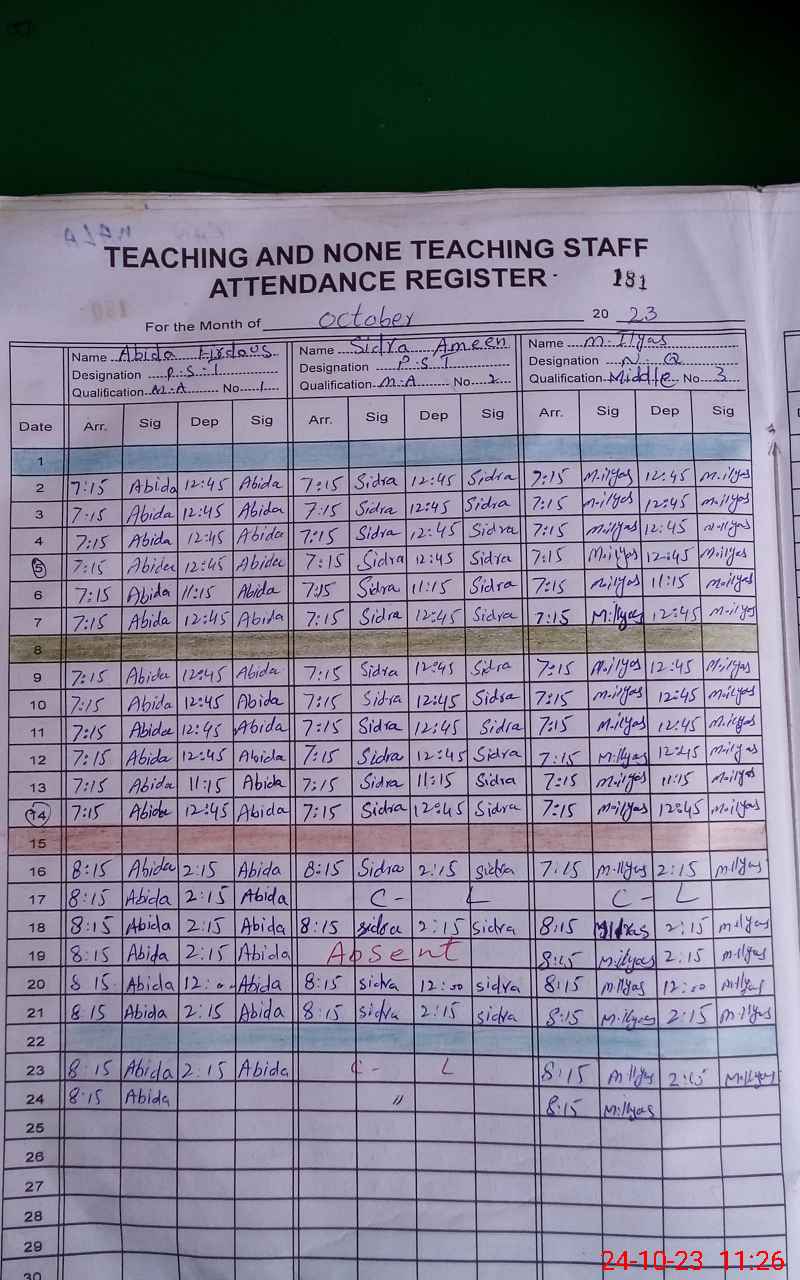 TEACHING AND NONE TEACHING STAFF
ATTENDANCE REGISTER 181
For the Month of October 20 23
Name Abida Firdous Name Sidra Ameen Name M. Ilyas
Designation P.S.T Designation P.S.T Designation N.Q
Qualification M.A No 1 Qualification M.A No 2 Qualification Middle No 3
Date Arr. Sig Dep Sig Arr. Sig Dep Sig Arr. Sig Dep Sig
1
2 7:15 Abida 12:45 Abida 7:15 Sidra 12:45 Sidra 7:15 M.ilyas 12:45 M.ilyas
3 7:15 Abida 12:45 Abida 7:15 Sidra 12:45 Sidra 7:15 M.ilyas 12:45 M.ilyas
4 7:15 Abida 12:45 Abida 7:15 Sidra 12:45 Sidra 7:15 M.ilyas 12:45 M.ilyas
5 7:15 Abida 12:45 Abida 7:15 Sidra 12:45 Sidra 7:15 M.ilyas 12:45 M.ilyas
6 7:15 Abida 11:15 Abida 7:15 Sidra 11:15 Sidra 7:15 M.ilyas 11:15 M.ilyas
7 7:15 Abida 12:45 Abida 7:15 Sidra 12:45 Sidra 7:15 M.ilyas 12:45 M.ilyas
8
9 7:15 Abida 12:45 Abida 7:15 Sidra 12:45 Sidra 7:15 M.ilyas 12:45 M.ilyas
10 7:15 Abida 12:45 Abida 7:15 Sidra 12:45 Sidra 7:15 M.ilyas 12:45 M.ilyas
11 7:15 Abida 12:45 Abida 7:15 Sidra 12:45 Sidra 7:15 M.ilyas 12:45 M.ilyas
12 7:15 Abida 12:45 Abida 7:15 Sidra 12:45 Sidra 7:15 M.ilyas 12:45 M.ilyas
13 7:15 Abida 11:15 Abida 7:15 Sidra 11:15 Sidra 7:15 M.ilyas 11:15 M.ilyas
14 7:15 Abida 12:45 Abida 7:15 Sidra 12:45 Sidra 7:15 M.ilyas 12:45 M.ilyas
15
16 8:15 Abida 2:15 Abida 8:15 Sidra 2:15 Sidra 7:15 M.ilyas 2:15 M.ilyas
17 8:15 Abida 2:15 Abida C- L C- L
18 8:15 Abida 2:15 Abida 8:15 Sidra 2:15 Sidra 8:15 M.ilyas 2:15 M.ilyas
19 8:15 Abida 2:15 Abida Absent 8:15 M.ilyas 2:15 M.ilyas
20 8 15 Abida 12:00 Abida 8:15 Sidra 12:00 Sidra 8:15 M.ilyas 12:00 M.ilyas
21 8 15 Abida 2:15 Abida 8:15 Sidra 2:15 Sidra 8:15 M.ilyas 2:15 M.ilyas
22
23 8:15 Abida 2:15 Abida C- L 8:15 M.ilyas 2:15 M.ilyas
24 8:15 Abida 〃 8:15 M.ilyas
25
26
27
28
29
30
24-10-23 11:26